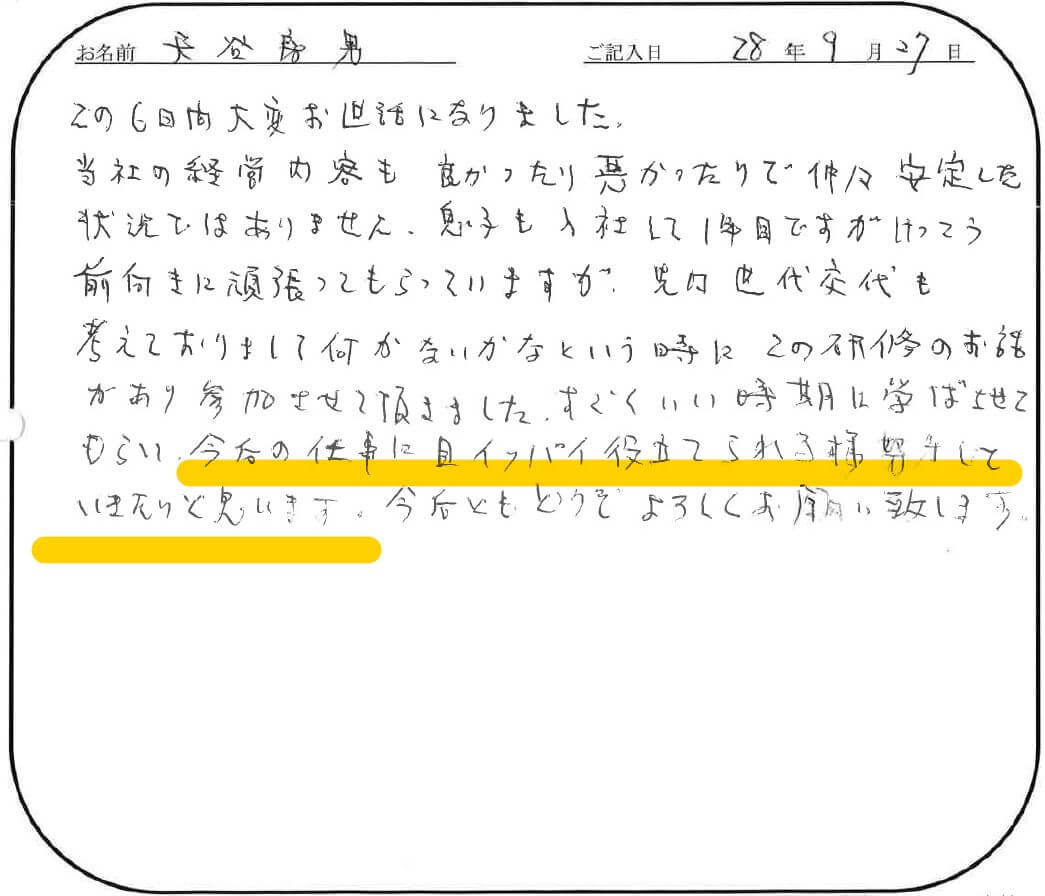 お名前 長谷 男 ご記入日 28年9月27日
この6日間大変お世話になりました。
当社の経営内容も良かったり悪かったりで仲々安定した
状況ではありません。息子も入社して1年目ですがけっこう
前向きに頑張ってもらっていますが、先的世代交代も
考えておりまして何かないかなという時にこの研修のお話
があり参加させて頂きました。すごくいい時期に学ばせて
もらい、今后の仕事に目イッパイ役立てられる様努力して
いきたいと思います。今后ともどうぞよろしくお願い致します。